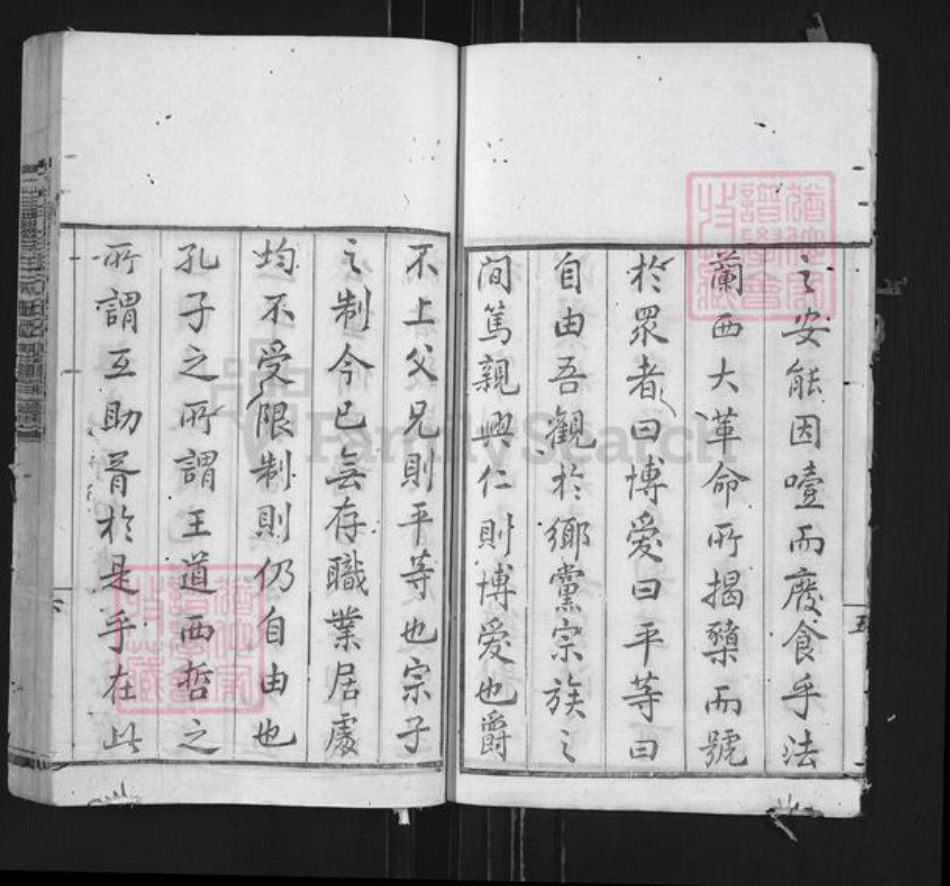 之安能因噎而廢食乎法
蘭西大革命所揭櫫而號
於眾者曰博愛曰平等曰
自由吾觀於鄉黨宗族之
間篤親興仁則博愛也爵
不上父兄則平等也宗子
之制今已無存職業居處
均不受限制則仍自由也
孔子之所謂王道西哲之
所謂互助胥於是乎在此
五
FamilySearch